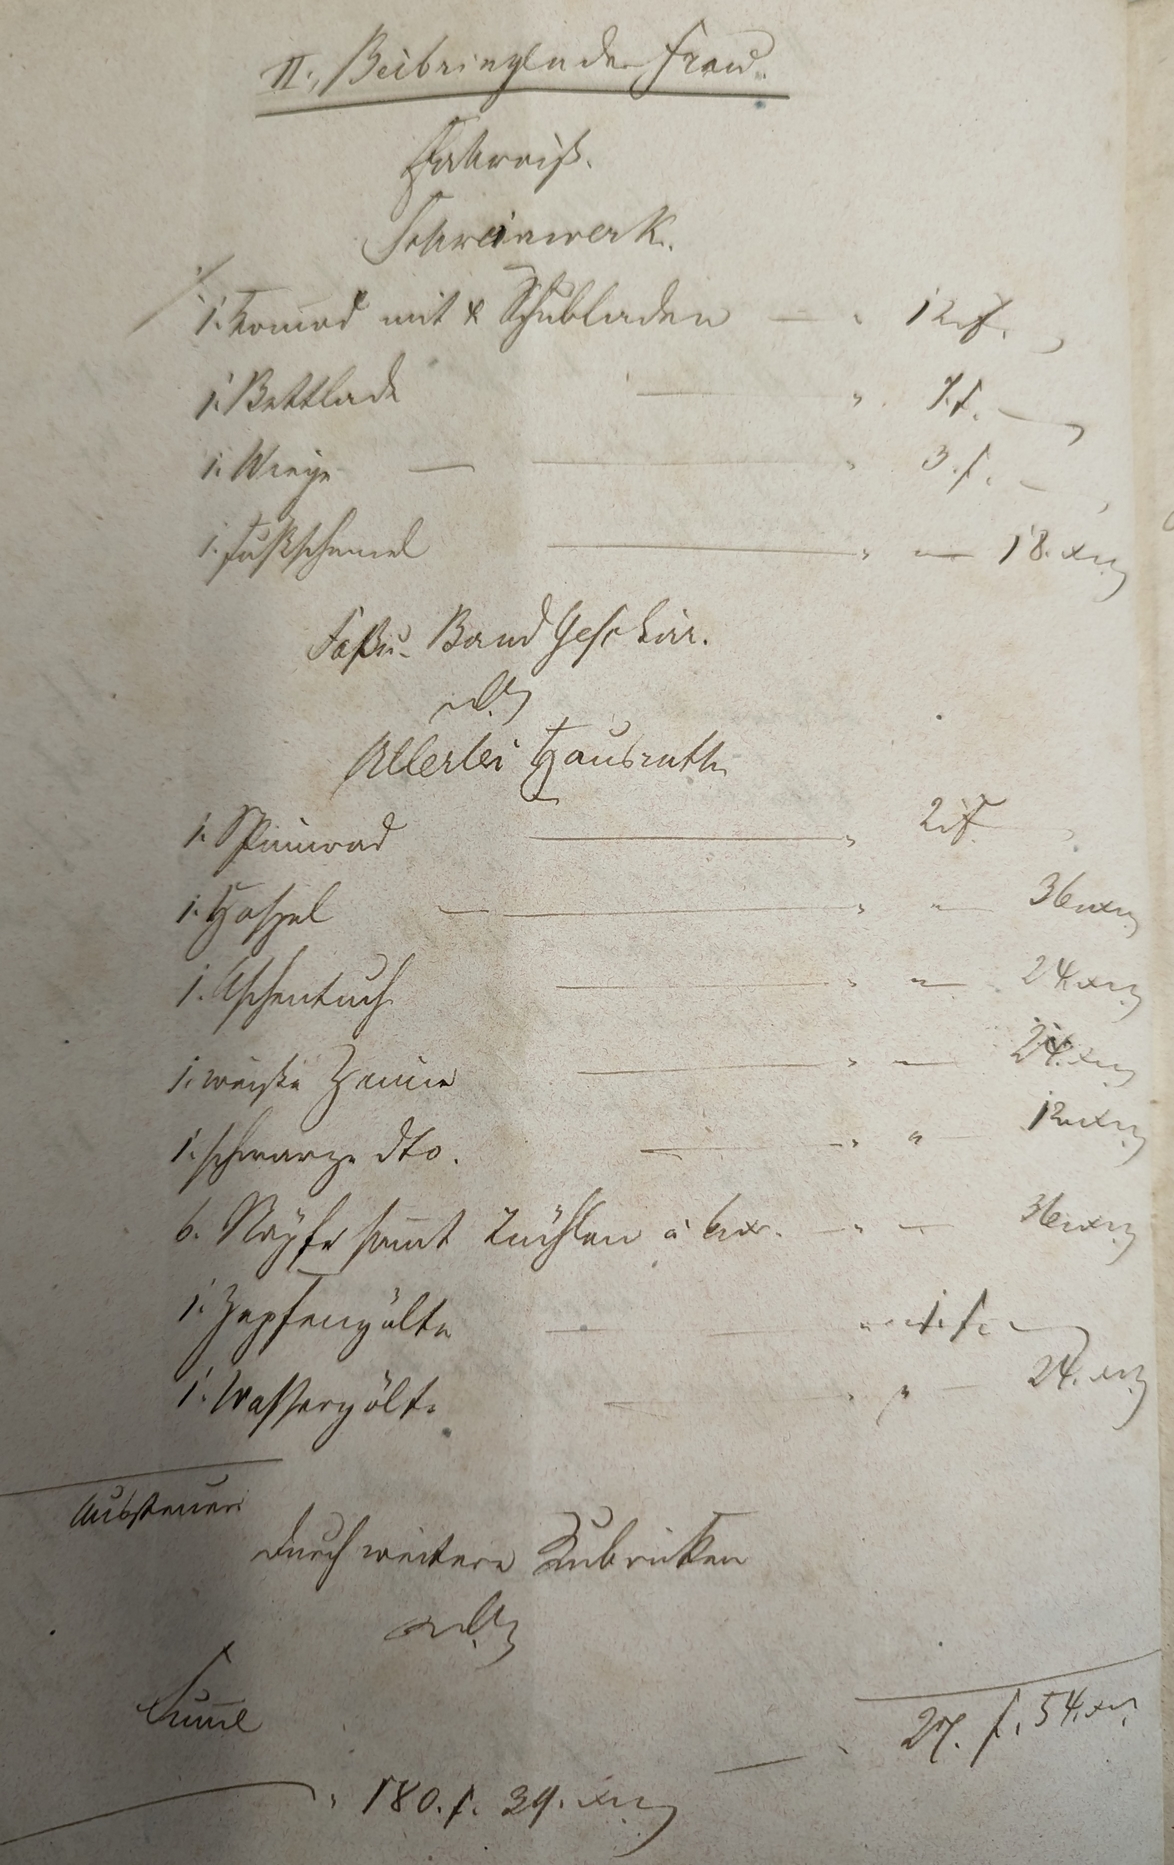 II., Beibringen der Frau.
Fahrniß.
Schreinwerk.
1. Komod mit 4 Schubladen — " 12. f. "
1. Bettlade — " 7. f. — "
1. Wiege — — " 3. f. — "
1. Fußschemel — " — 18. xr.
Faß u. Band Geschirr.
Allerlei Hausrath
1. Spinnrad — " 2. f. "
1. Haspel — " " 36. xr.
1. Aschentuch — " — 24. xr.
1. weiße Zeine — " — 24. xr.
1. schwarze dto. — " " 12. xr.
6. Näpfe sammt à 6. xr. — " — 36. xr.
1. Zapfengölte — " 1. f. —
1. Wassergölte — " " 24. xr.
Aussteuer
durch weitere Rubriken
Summe
— " 27. f. 54. xr.
" 180. f. 39. xr.